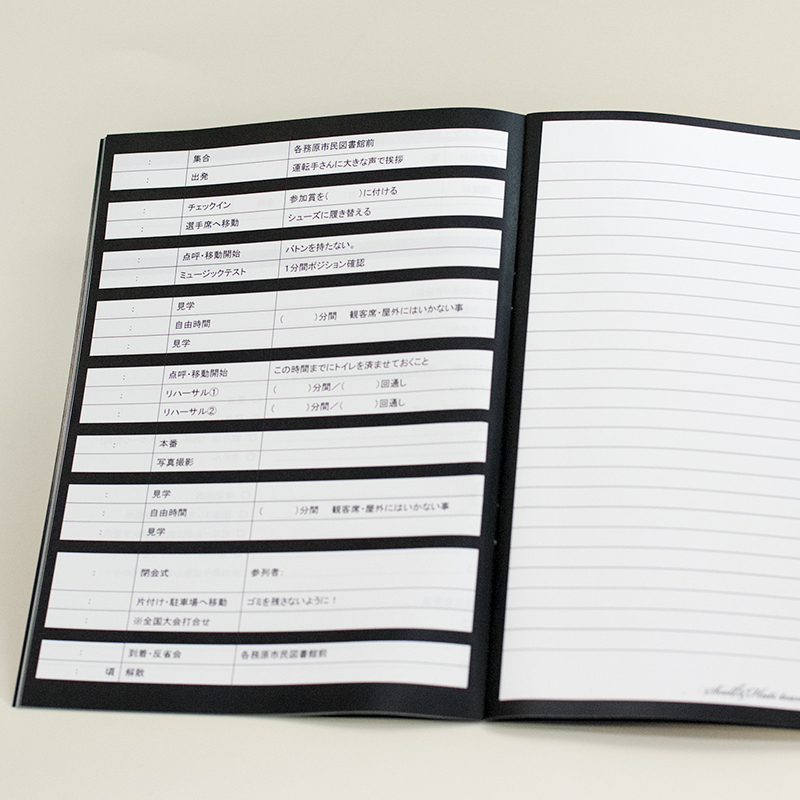 : 集合 各務原市民図書館前
: 出発 運転手さんに大きな声で挨拶
: チェックイン 参加賞を(　　)に付ける
: 選手席へ移動 シューズに履き替える
: 点呼・移動開始 バトンを持たない。
: ミュージックテスト 1分間ポジション確認
: 見学
: 自由時間 (　　)分間　観客席・屋外にはいかない事
: 見学
: 点呼・移動開始 この時間までにトイレを済ませておくこと
: リハーサル① (　　)分間／(　　)回通し
: リハーサル② (　　)分間／(　　)回通し
: 本番
写真撮影
: 見学
: 自由時間 (　　)分間　観客席・屋外にはいかない事
: 見学
: 閉会式 参列者:
: 片付け・駐車場へ移動 ゴミを残さないように！
: ※全国大会打合せ
: 到着・反省会 各務原市民図書館前
: 頃 解散